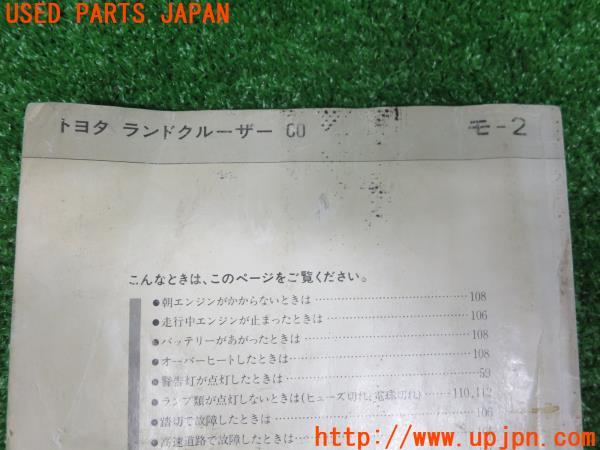 USED PARTS JAPAN
トヨタ ランドクルーザー 60 モ-2
こんなときは、このページをご覧ください。
●朝エンジンがかからないときは 108
●走行中エンジンが止まったときは 106
●バッテリーがあがったときは 108
●オーバーヒートしたときは 108
●警告灯が点灯したときは 59
●ランプ類が点灯しないときは(ヒューズ切れ、電球切れ) 110,112
●踏切で故障したときは 106
●高速道路で故障したときは
http://www.upjpn.com/